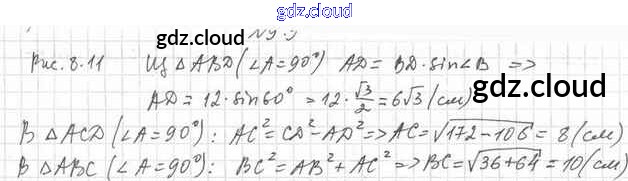 gdz.cloud
gdz.cloud
Рис. 8.11 Из △ABD (∠A=90°) AD = BD·sin∠B =>
AD = 12·sin60° = 12·√3/2 = 6√3 (см) gdz.cloud
В △ACD (∠A=90°): AC² = CD² - AD² => AC = √172-106 = 8 (см)
В △ABC (∠A=90°): BC² = AB² + AC² => BC = √36+64 = 10 (см)